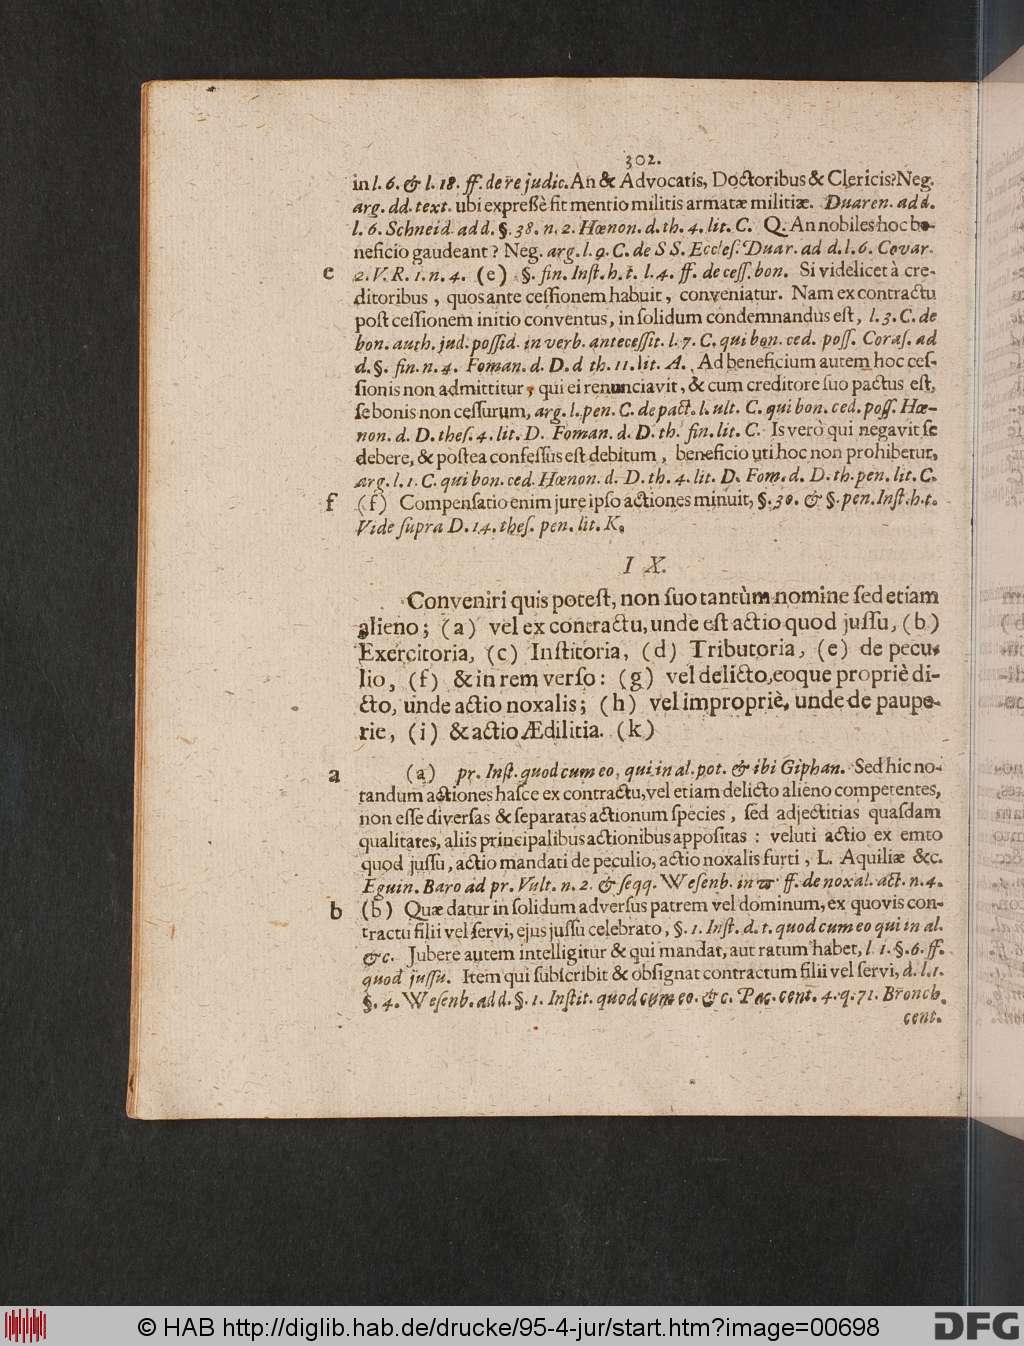 302.
in l. 6. & l. 18. ff. de re judic. An & Advocatis, Doctoribus & Clericis? Neg.
arg. dd. text. ubi expreßè fit mentio militis armatæ militiæ. Duaren. add.
l. 6. Schneid. add. §. 38. n. 2. Hœnon. d. th. 4. lit. C. Q. An nobiles hoc be-
neficio gaudeant? Neg. arg. l. 9. C. de S S. Eccles. Duar. ad d. l. 6. Covar.
e 2. V. R. 1. n. 4. (e) §. fin. Inst. h. t. l. 4. ff. de cess. bon. Si videlicet à cre-
ditoribus, quos ante cessionem habuit, conveniatur. Nam ex contractu
post cessionem initio conventus, in solidum condemnandus est, l. 3. C. de
bon. auth. jud. possid. in verb. antecessit. l. 7. C. qui bon. ced. poss. Coras. ad
d. §. fin. n. 4. Foman. d. D. d th. 11. lit. A. Ad beneficium autem hoc ces-
sionis non admittitur, qui ei renunciavit, & cum creditore suo pactus est,
se bonis non cessurum, arg. l. pen. C. de pact. l. ult. C. qui bon. ced. poss. Hœ-
non. d. D. thes. 4. lit. D. Foman. d. D. th. fin. lit. C. Is verò qui negavit se
debere, & postea confessus est debitum, beneficio uti hoc non prohibetur,
arg. l. 1. C. qui bon. ced. Hœnon. d. D. th. 4. lit. D. Fom. d. D. th. pen. lit. C.
f (f) Compensatio enim jure ipso actiones minuit, §. 30. & §. pen. Inst. h. t.
Vide supra D. 14. thes. pen. lit. K.
I X.
Conveniri quis potest, non suo tantùm nomine sed etiam
alieno; (a) vel ex contractu, unde est actio quod jussu, (b)
Exercitoria, (c) Institoria, (d) Tributoria, (e) de pecu-
lio, (f) & in rem verso: (g) vel delicto, eoque propriè di-
cto, unde actio noxalis; (h) vel impropriè, unde de paupe-
rie, (i) & actio Ædilitia. (k)
a (a) pr. Inst. quod cum eo, qui in al. pot. & ibi Giphan. Sed hic no-
tandum actiones hasce ex contractu, vel etiam delicto alieno competentes,
non esse diversas & separatas actionum species, sed adjectitias quasdam
qualitates, aliis principalibus actionibus appositas: veluti actio ex emto
quod jussu, actio mandati de peculio, actio noxalis furti, L. Aquiliæ &c.
Eguin. Baro ad pr. Vult. n. 2. & seqq. Wesenb. in ϖ ff. de noxal. act. n. 4.
b (b) Quæ datur in solidum adversus patrem vel dominum, ex quovis con-
tractu filii vel servi, ejus jussu celebrato, §. 1. Inst. d. t. quod cum eo qui in al.
&c. Jubere autem intelligitur & qui mandat, aut ratum habet, l 1. §. 6. ff.
quod jussu. Item qui subscribit & obsignat contractum filii vel servi, d. l. 1.
§. 4. Wesenb. add. §. 1. Instit. quod cum eo. &c. Pac. cent. 4. q. 71. Bronch.
cent.
© HAB http://diglib.hab.de/drucke/95-4-jur/start.htm?image=00698
DFG